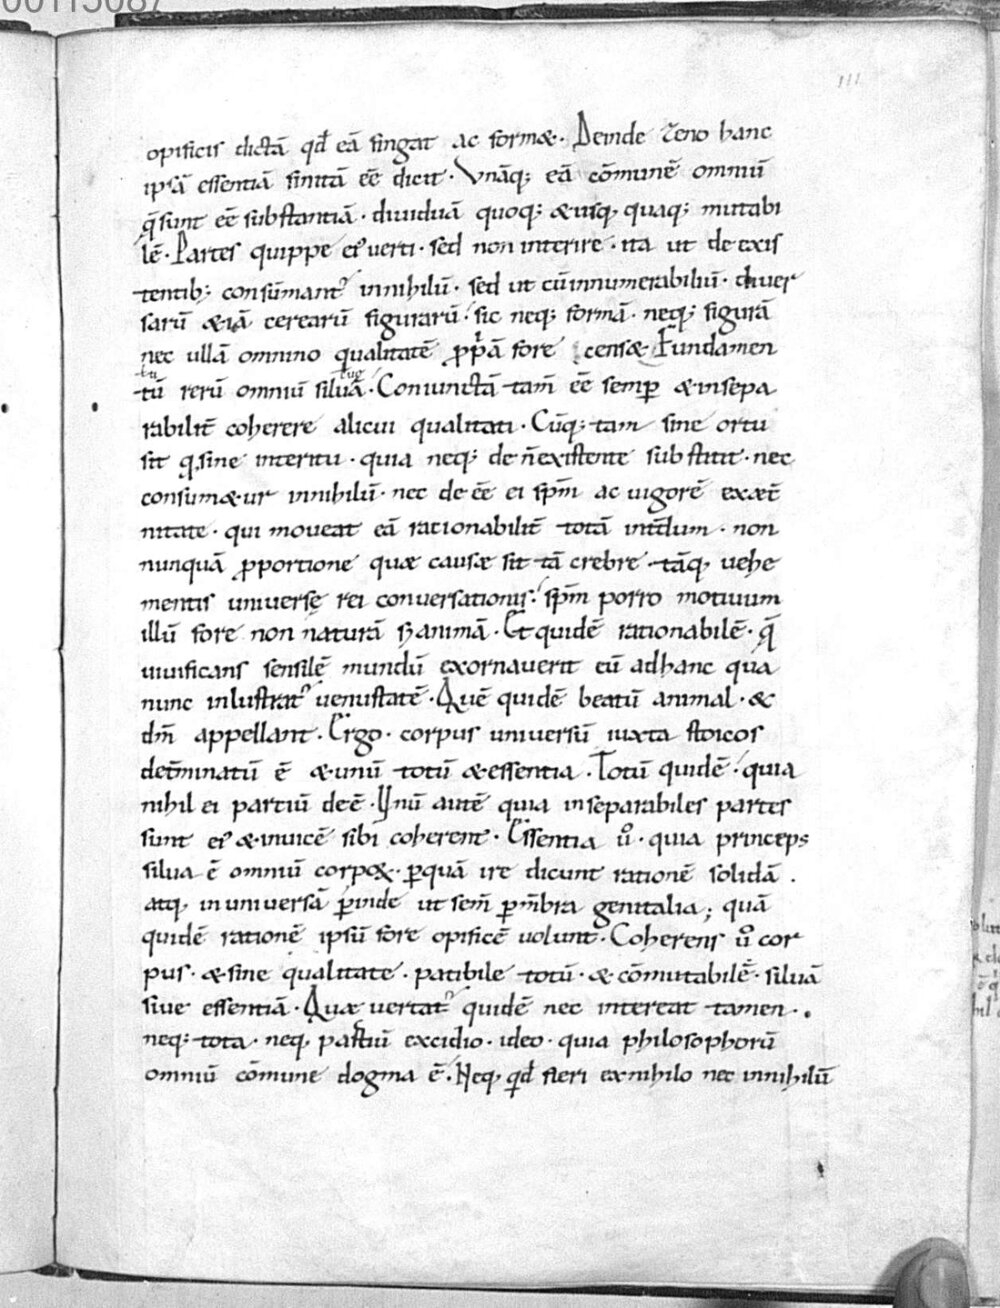 00115087
111
opificis dictā qđ eā fingat ac formæ· Deinde Zeno hanc
ipsā essentiā finitā eē dicit· Vnāq; eā cōmunē omniū
q̄ sunt eē substantiā· diuiduā quoq; &usq; quaq; mutabi
lē· Partes quippe ei᾽ verti· sed non interire· ita ut de exis
tentib; consūmant᾽ innihilū· sed ut cū innumerabiliū· diver
sarū &iā cerearū figurarū· sic neq; formā· neq; figurā
nec ullā omnino qualitatē ꝓpriā fore censæ Fundamen
tū rerū omniū siluā· Coniunctā tam̄ eē semꝑ &insepa
rabilit̄ coherere alicui qualitati· Cūq; tam sine ortu
sit q, sine interitu· quia neq; de n̄ existente substitit· nec
consumæur innihilū· nec de eē ei spm̄ ac uigorē exæt̄
nitate· qui moueat eā rationabilit̄ totā int̄dum· non
nunquā ꝓportione quæ causæ sit tā crebre· tāq, vehe
mentis universę rei conversationis· spm̄ porro motiuum
illū fore non naturā ꞩ animā· Et quidē rationabilē· q̄
uiuificans sensilē mundū exornaverit eū adhanc qua
nunc inlustrat᾽ uenustatē· Quē quidē beatū animal· &
dm̄ appellant· Ergo· corpus universū iuxta stoicos
det̄minatū ē &unū totū &essentia· Totū quidē· quia
nihil ei partiū deē· Vnū autē quia inseparabiles partes
sunt ei᾽ &inuicē sibi coherent· Essentia ů· quia princeps
silua ē omniū corpoꝝ· ꝑquā ire dicunt rationē solidā·
atq, in universā ꝑinde ut sem̄ ꝑ m̄bra genitalia; quā
quidē rationē ipsū fore opificē volunt· Coherens ů cor
pus· &sine qualitate· patibile totū· &cōmutabilē· siluā
siue essentiā· Quæ vertat᾽ quidē nec intereat tamen·
neq; tota· neq, partiū excidio· ideo· quia philosophorū
omniū cōmune dogma ē· Neq, qđ fieri ex nihilo nec innihilū